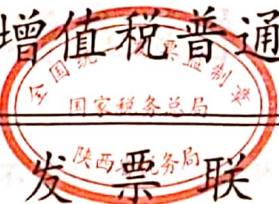 增值税普通
全国统 票监制章
国家税务总局
陕西 税务局
发票联